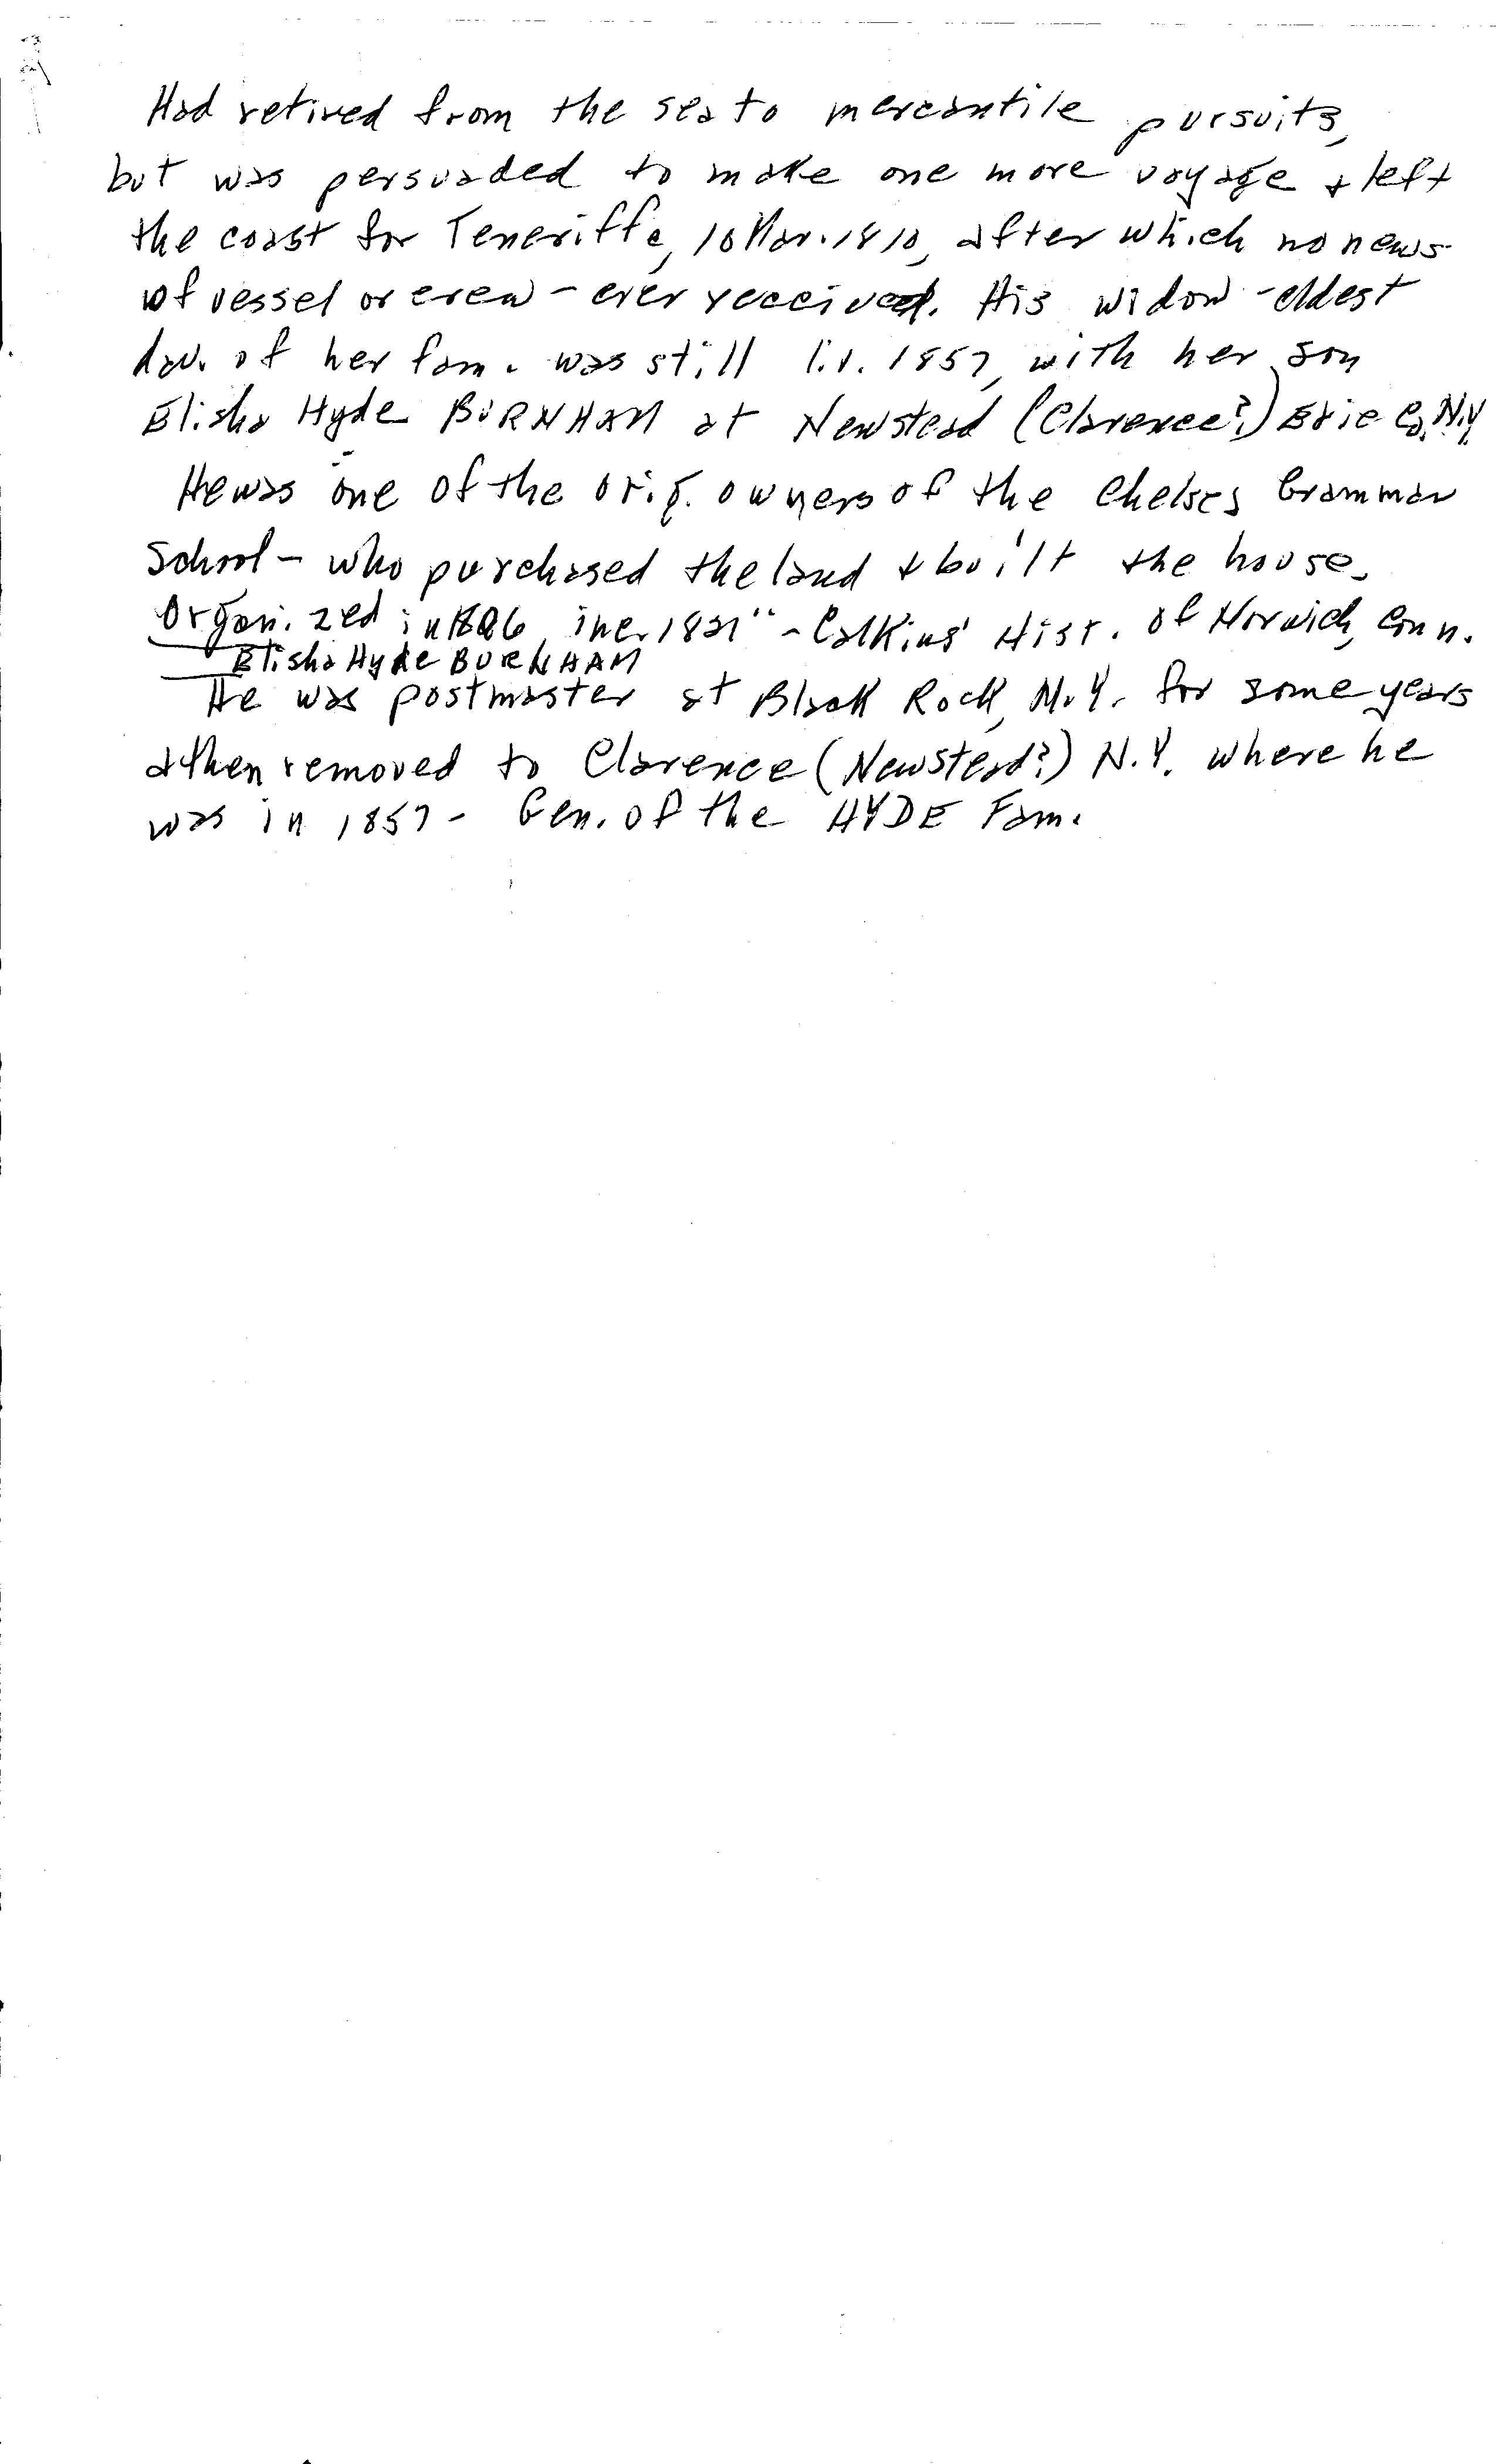 Had retired from the sea to mercantile pursuits,
but was persuaded to make one more voyage & left
the coast for Teneriffe, 10 Mar. 1810, after which no news
of vessel or crew - ever received. His widow - eldest
dau. of her fam. was still liv. 1857, with her son
Elisha Hyde BURNHAM at Newstead (Clarence?) Erie Co. N.Y.
He was one of the orig. owners of the Chelsea Grammar
School - who purchased the land & built the house.
Organized in 1806, inc. 1821" - Calkins' Hist. of Norwich, Conn.
Elisha Hyde BURNHAM
He was postmaster at Black Rock, N.Y. for some years
& then removed to Clarence (Newstead?) N.Y. where he
was in 1857 - Gen. of the HYDE Fam.